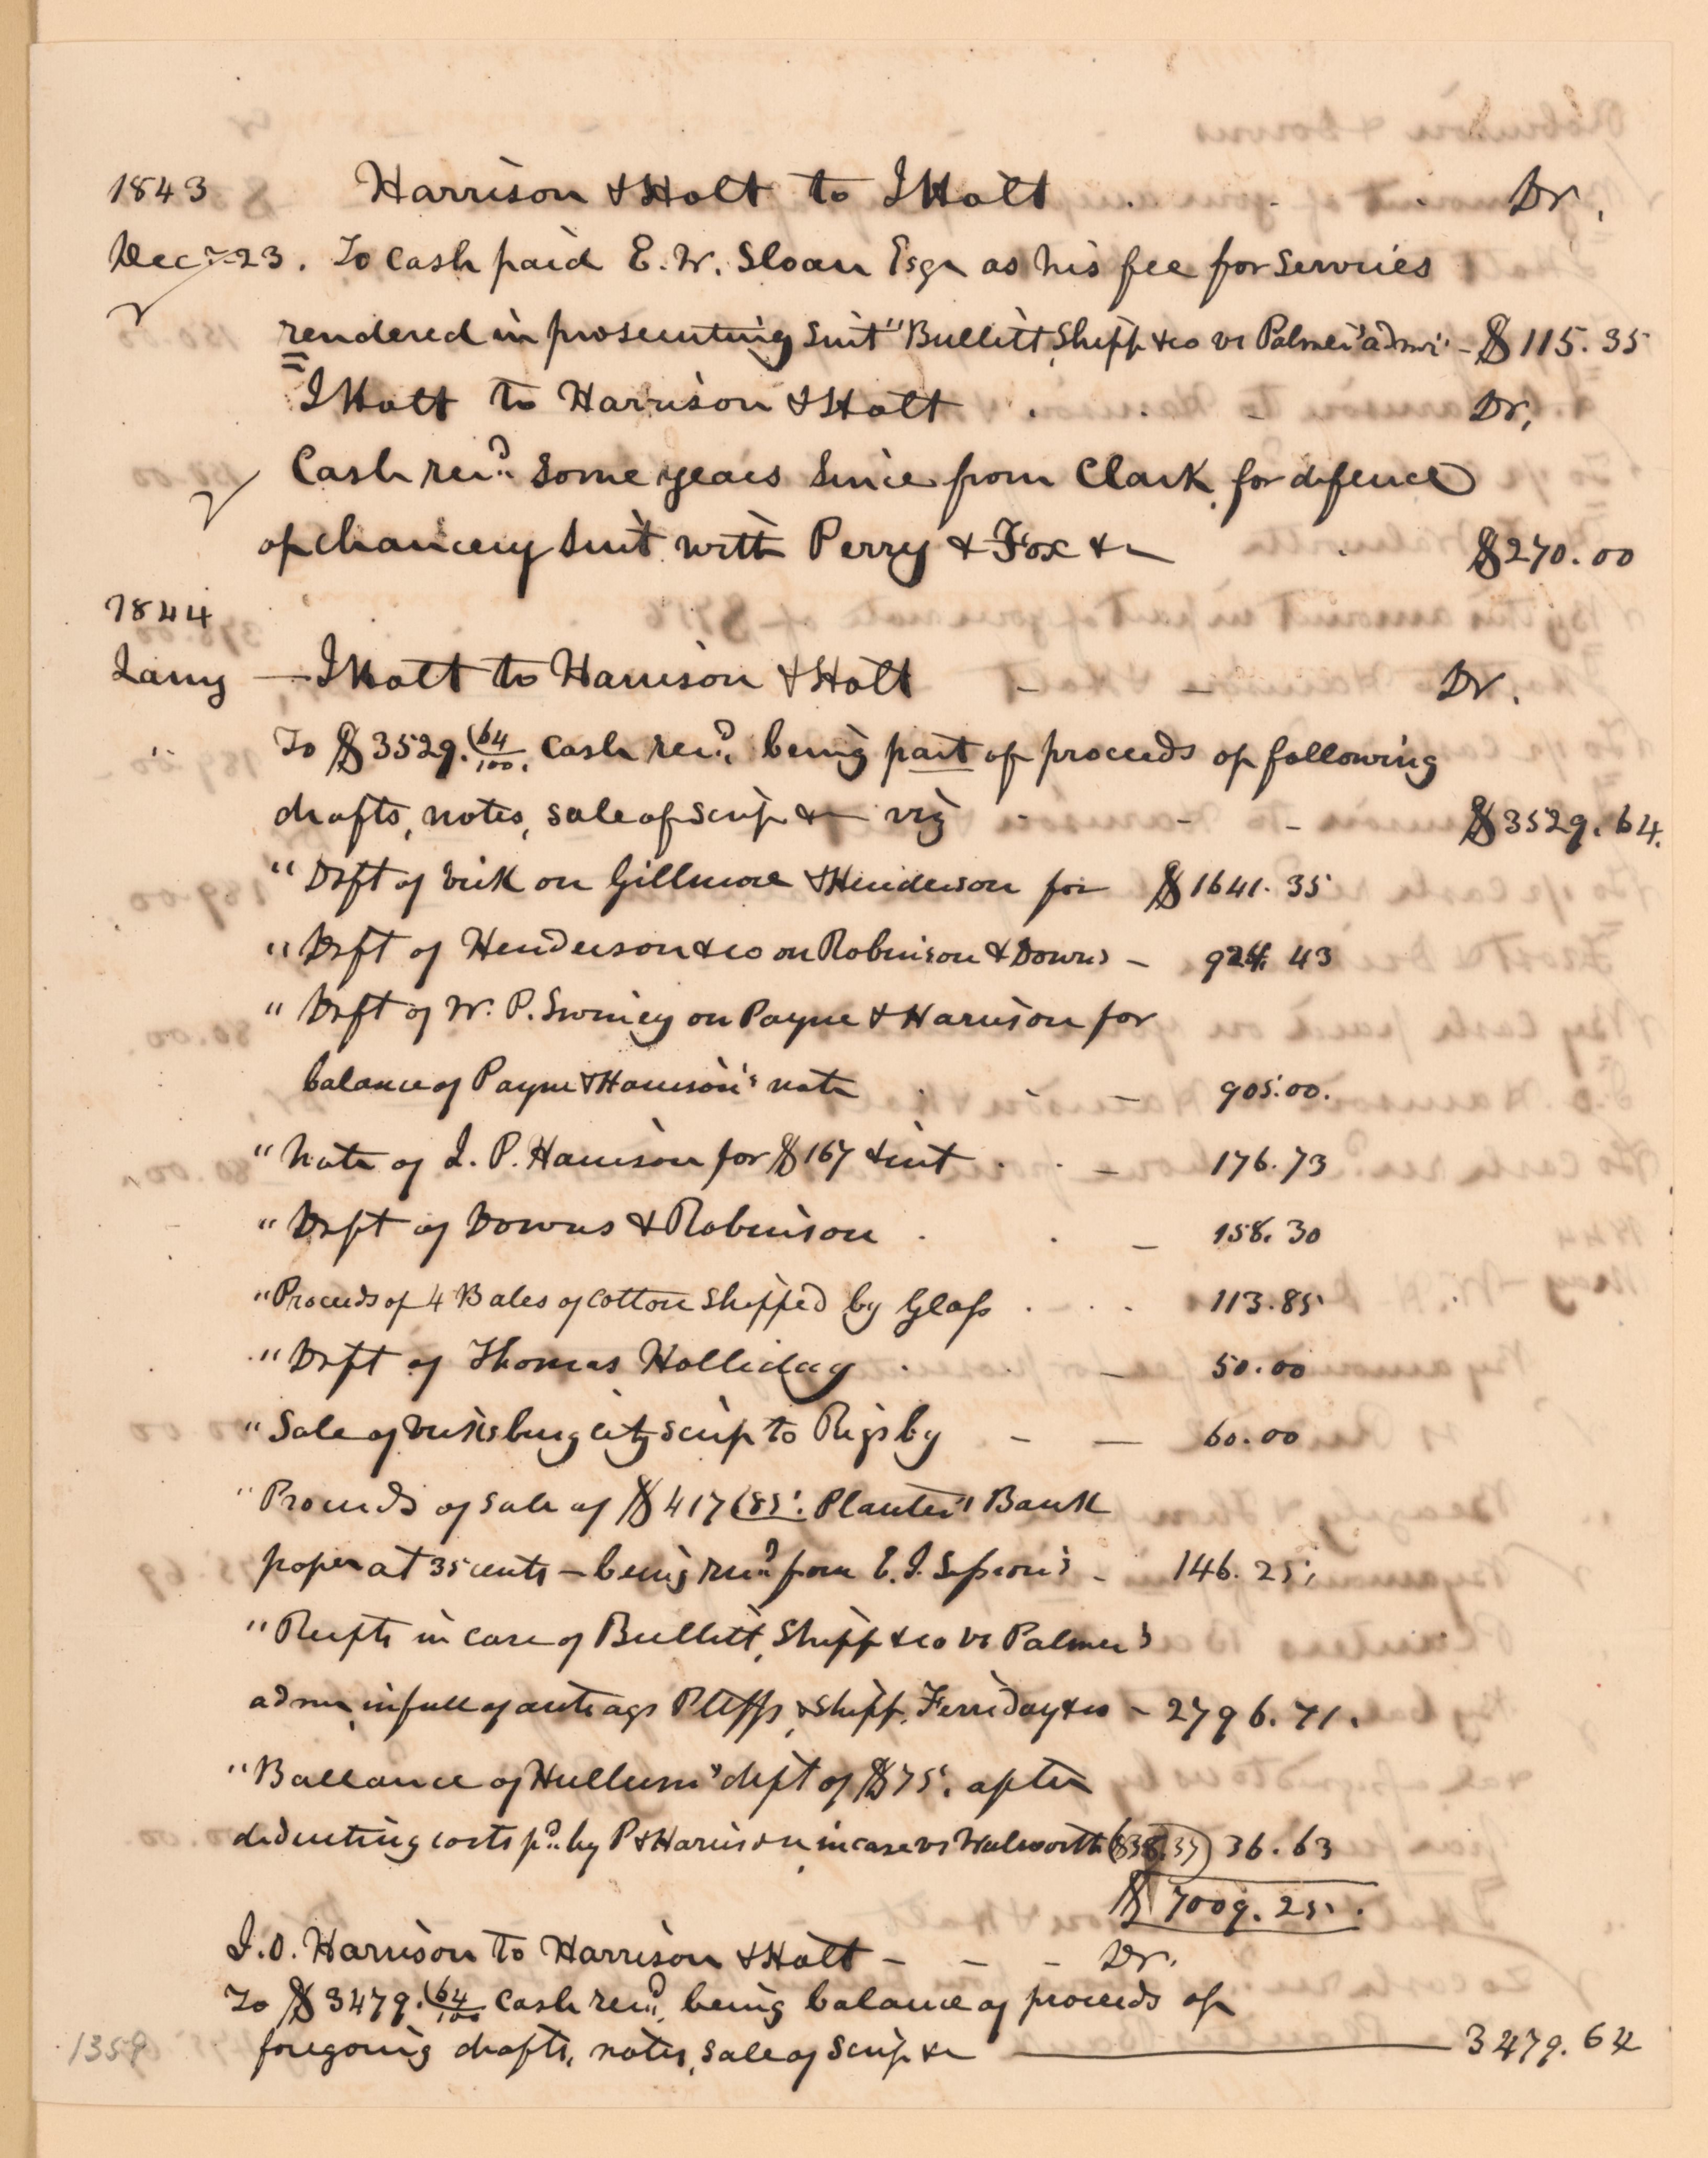 1843 Harrison & Holt to J Holt . . . Dr.
Decr 23. To Cash paid E. W. Sloan Esqr as his fee for Services
rendered in prosecuting Suit "Bullitt, Shipp & co vs Palmer's admr" - $115.35
J Holt to Harrison & Holt . . - Dr,
Cash recd. Some years Since from Clark, for defence
of chancery Suit with Perry & Fox &c . $270.00
1844
Jany — J Holt to Harrison & Holt - - Dr.
To $3529.64/100. Cash recd. being part of proceeds of following
drafts, notes, sale of scrip &c viz - - - $3529.64.
" Drft of Vick on Gillmore & Henderson for $1641.35
" Drft of Henderson & co on Robinson & Downs - 924.43
" Drft of W. P. Swiney on Payne & Harrison for
balance of Payne & Harrison's note . . - 905.00.
" Note of J. P. Harrison for $167 & int . . - 176.73
" Drft of Downs & Robinson . . - 158.30
" Proceeds of 4 Bales of Cotton Shipped by Glass . . . 113.85
" Drft of Thomas Holliday . . - 50.00
" Sale of Vicksburg City Scrip to Rigsby - — 60.00
" Proceeds of Sale of $417(85. Planters' Bank
paper at 35 cents — being recd. from E. J. Sessions - 146.25
" Recpts in case of Bullitt, Shipp & co vs Palmer's
admr, in full of Plffs, & Shipp, Ferriday & co - 2796.71.
" Ballance of Hullum's drft of $75. after
deducting costs pd. by P & Harrison, in case vs Walworth ($38.37) 36.63
$7009.25.
J. O. Harrison to Harrison & Holt - - - Dr.
To $3479.64/100 Cash recd, being balance of proceeds of
foregoing drafts, notes, sale of Scrip &c — 3479.64
1359